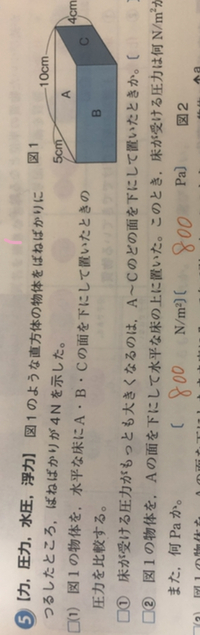 5 [力, 圧力, 水圧, 浮力] 図1のような直方体の物体をばねばかりに
つるしたところ, ばねばかりが4Nを示した。
□(1) 図1の物体を, 水平な床にA・B・Cの面を下にして置いたときの
圧力を比較する。
□① 床が受ける圧力がもっとも大きくなるのは, A〜Cのどの面を下にして置いたときか。〔
□② 図1の物体を, Aの面を下にして水平な床の上に置いた。このとき, 床が受ける圧力は何N/m²か
また, 何Paか。 〔 800 N/m²〕〔 800 Pa〕
図1
10cm
4cm
5cm
A
B
C
図2